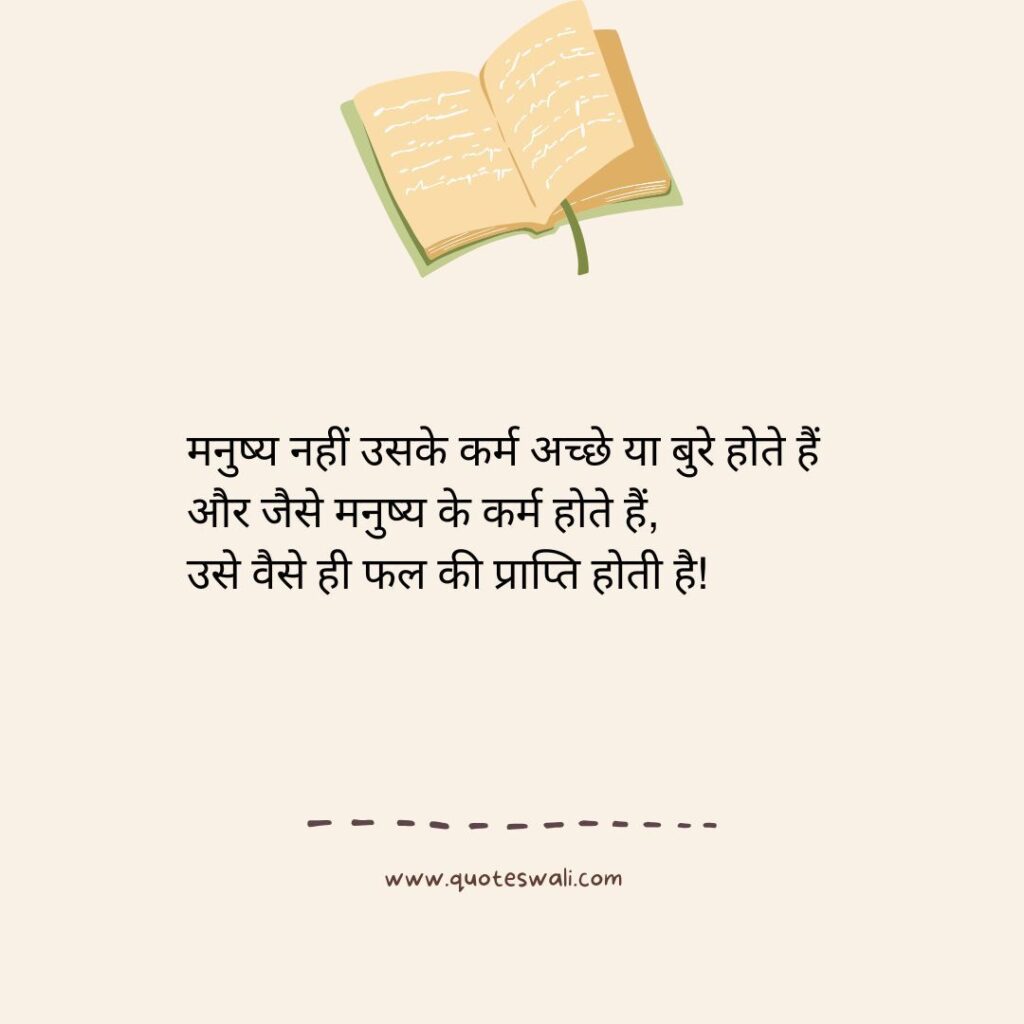 मनुष्य नहीं उसके कर्म अच्छे या बुरे होते हैं
और जैसे मनुष्य के कर्म होते हैं,
उसे वैसे ही फल की प्राप्ति होती है!
www.quoteswali.com